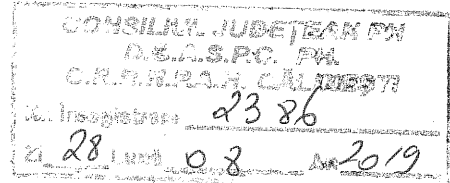 CONSILIUL JUDEȚEAN PH
D.G.A.S.P.C. PH.
C.R.R.N.P.A.H. CĂLINEȘTI
Nr. Înregistrare 2386
Zi 28 Luna 08 An 2019